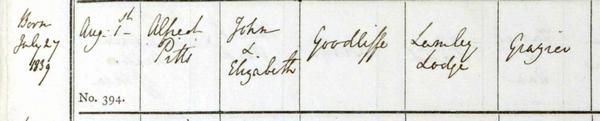 Born
July 27
1839
Aug: 1st
Alfred
Pitts
John
&
Elizabeth
Goodliffe
Lumley
Lodge
Grazier
No. 394.